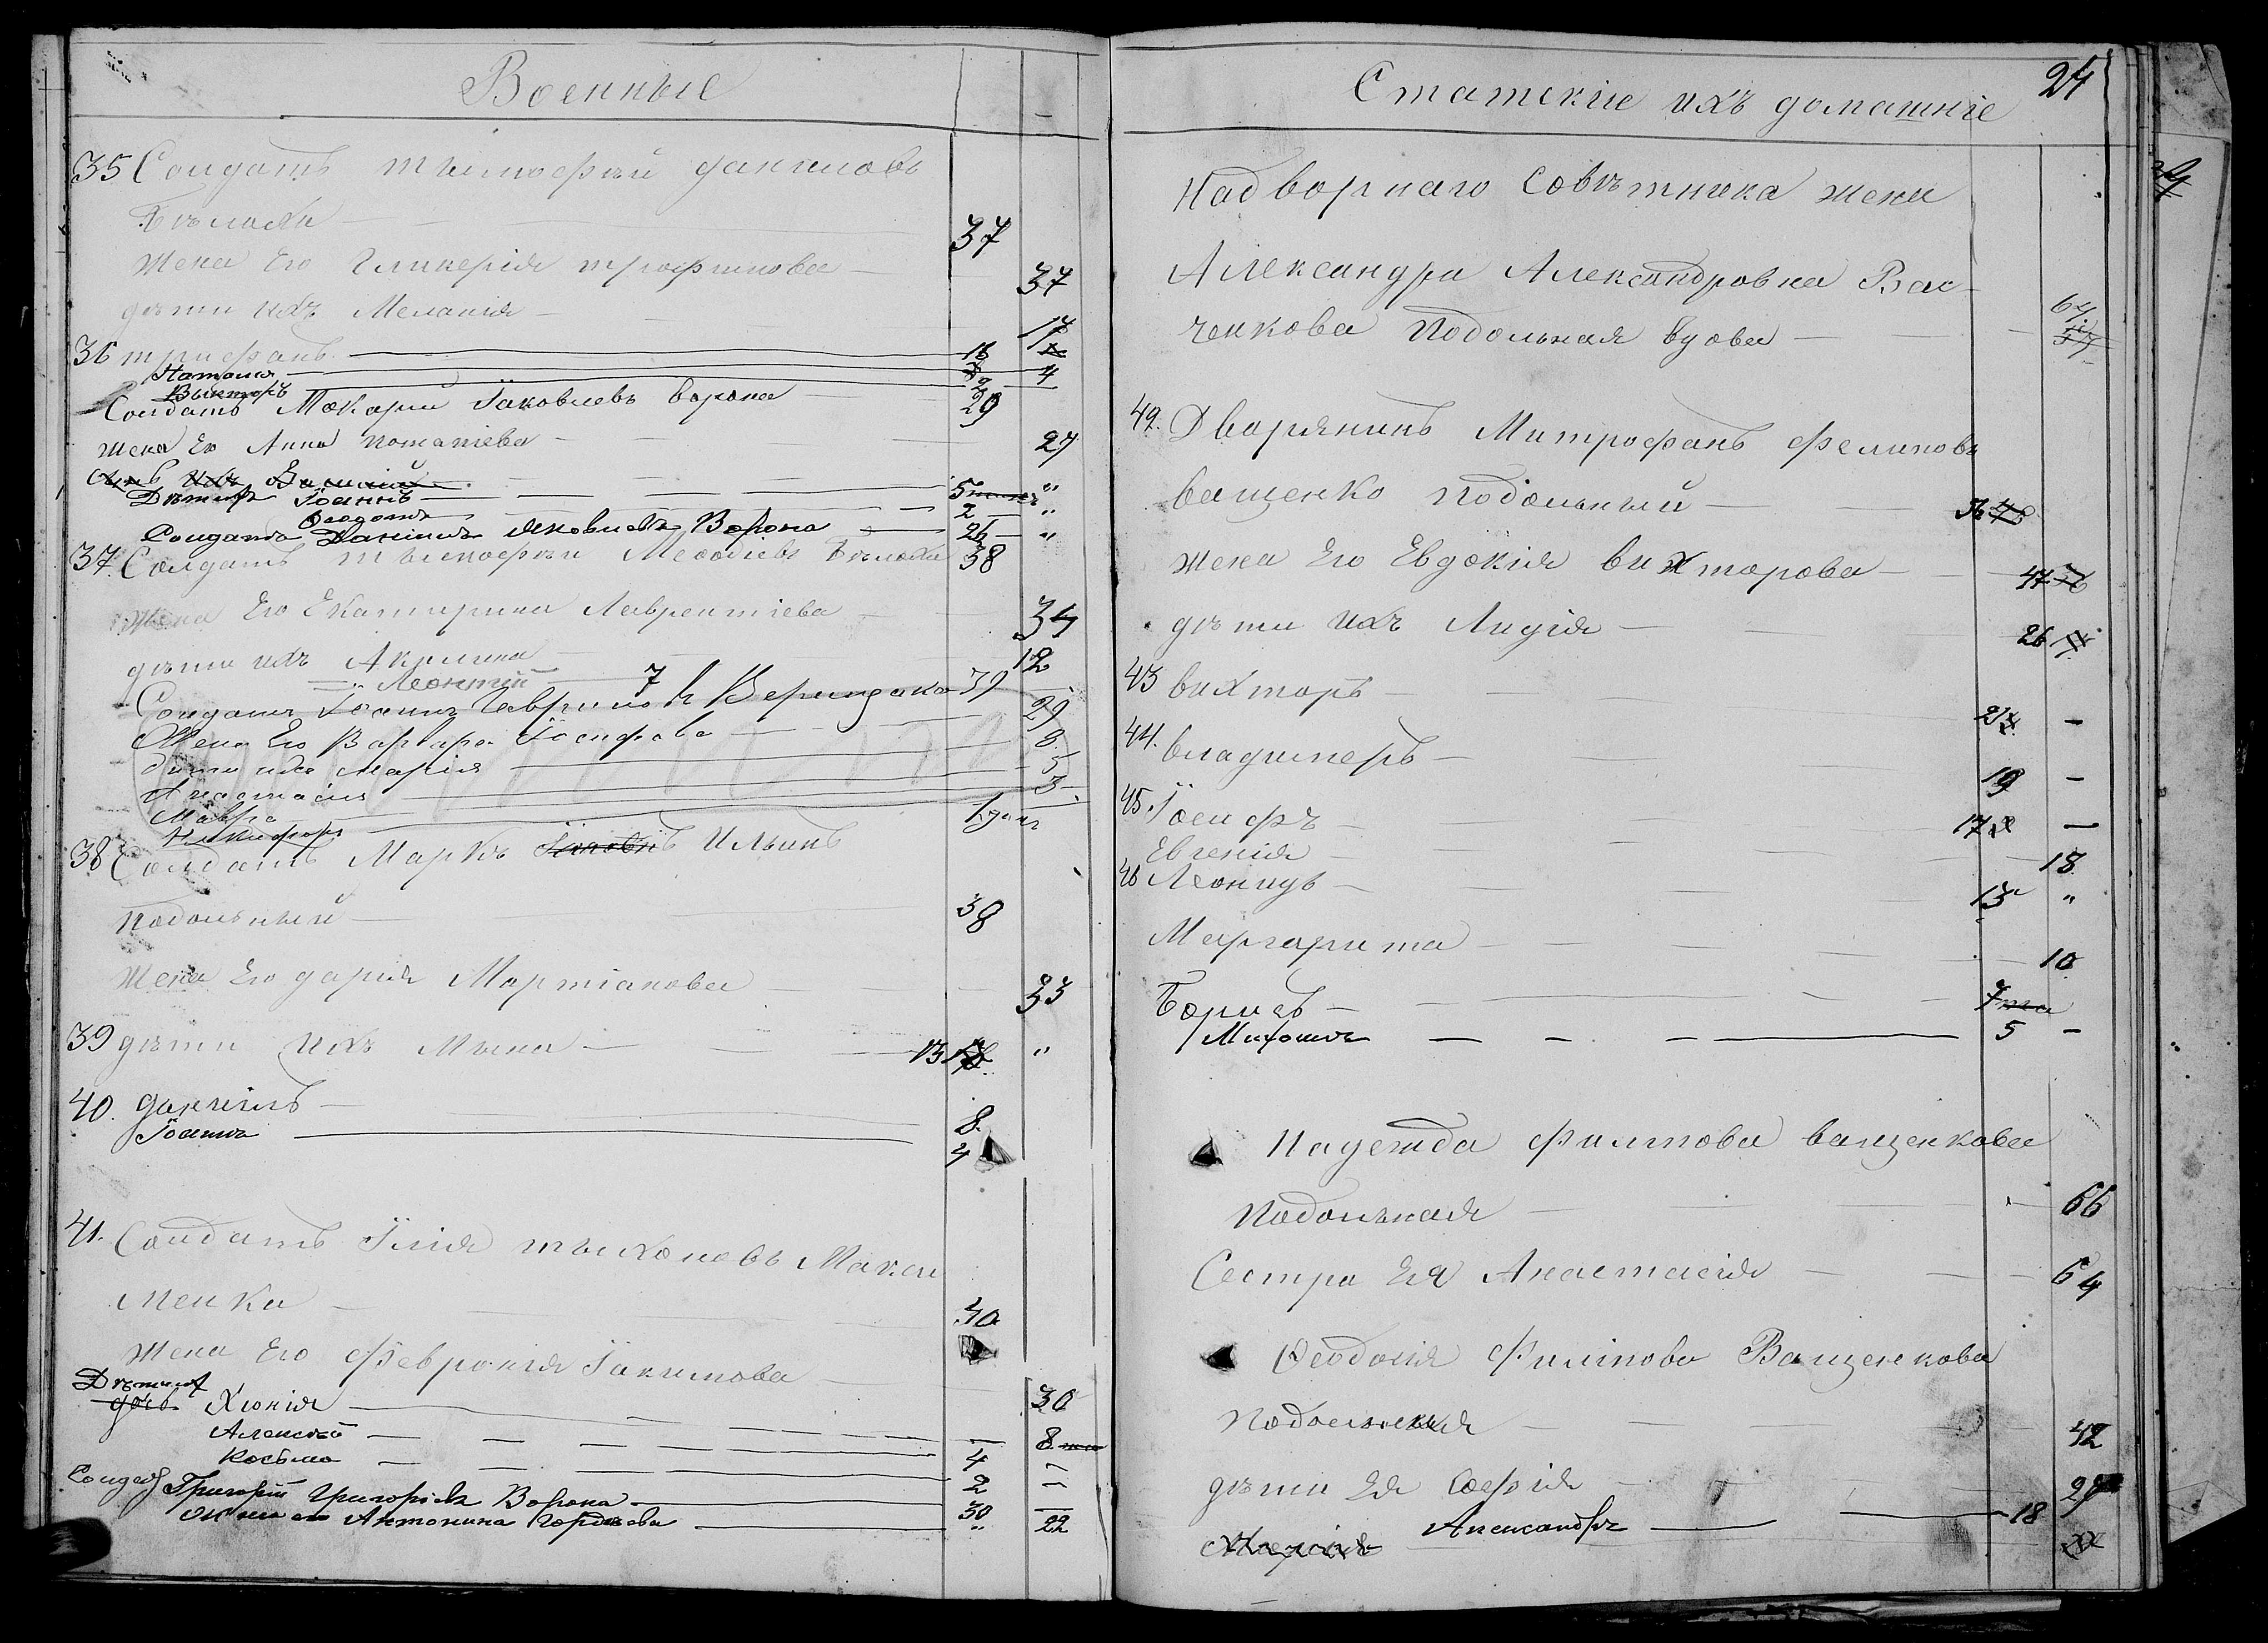 Военные
35 Солдатъ тимофей даниловъ
Бѣлоха
37
жена Его Гликерія трофимова
37
дѣти ихъ Меланія
17
36 трифанъ
Наталія
4
Викторъ
2
Солдатъ Макарій Іаковлевъ ворона 29
жена Его Анна потапіева
27
сынъ ихъ Василий
Дѣти ихъ Іоаннъ 5 "
Феодосія 2 "
Солдатъ Даніилъ Яковлевъ Ворона 26 "
37. Солдатъ тимофей Меѳодіевъ Бѣлоха 38
жена Его Екатирина Лаврентіева
34
дѣти ихъ Акилина
12
Леонтій 7
Солдатъ Іоаннъ Гавриловъ 39
Жена Его Варвара Іосифова 29
дѣти ихъ Марія 8
Анастасія 5
Мавра 3
Никифоръ 1 годъ
38 Солдатъ Маркъ Іяковлевъ Ильинъ
Подольный
38
жена Его дарія Мартіанова
33
39 дѣти ихъ Мина 13 "
40. даніилъ
8
Іоаннъ
4
41. Солдатъ Илія тихоновъ Мака
менко
30
жена Его Февронія Іакимова
30
Дѣти их
дочь Хіонія
8
Алексѣй 4
Косьма 2
Солдатъ Григорій Григоріевъ Ворона 30
Жена его Антонина Гордѣева " 22
24
Статскіе ихъ домашніе
Надворнаго Совѣтника жена
Александра Александровна Ва
ченкова Подольная вдова
67
42. Дворянинъ Митрофанъ Филиповъ
ващенко Подольный
жена Его Евдокія вихторова
47
дѣти ихъ Лидія
26
43 вихторъ
21 -
44. владимеръ
19 -
45. Іосифъ
17 -
Евгенія
18
46 Леонидъ
13 "
Маргарита
10
Борисъ
7
Михаилъ 5 -
Надежда Филипова ващенкова
Подольная
66
Сестра Ея Анастасія
64
Феодосія Филипова Ващенкова
Подольская
42
дѣти Ея Софія
Александръ 18
Марія